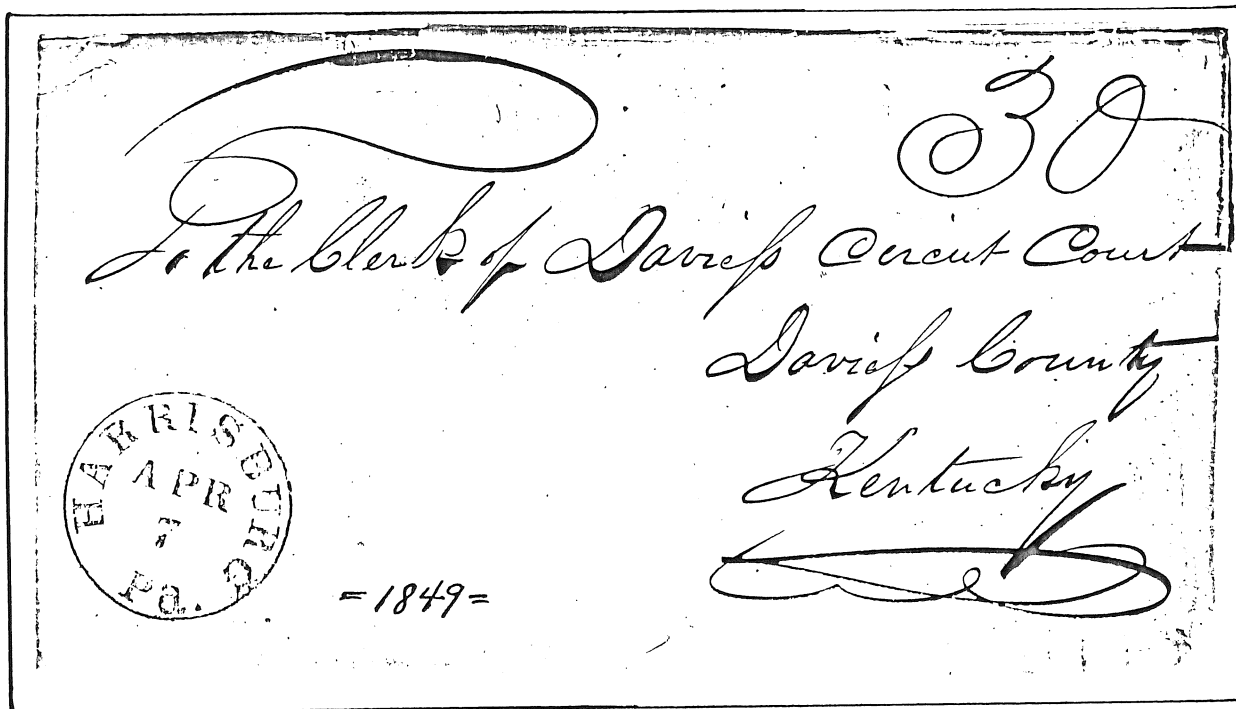 30
To the Clerk of Daviess Circuit Court
Daviess County
Kentucky
HARRISBURG Pa.
APR
7
=1849=